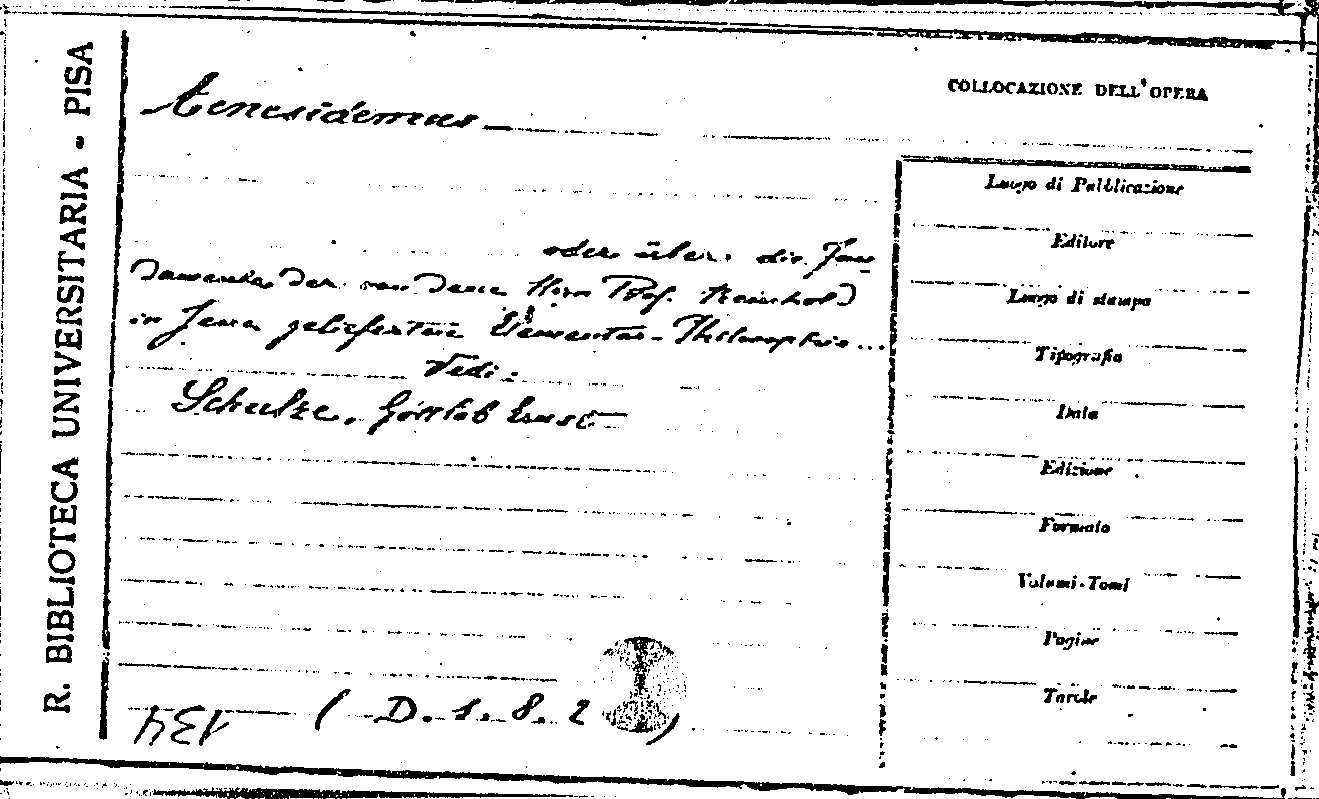 R. BIBLIOTECA UNIVERSITARIA - PISA
COLLOCAZIONE DELL'OPERA
Aenesidemus
oder über die Fun-
damente der von dem Herrn Prof. Reinhold
in Jena gelieferten Elementar-Philosophie...
Vedi:
Schulze, Gottlob Ernst
( D. 1. 8. 2 )
Luogo di Pubblicazione
Editore
Luogo di stampa
Tipografia
Data
Edizione
Formato
Volumi-Tomi
Pagine
Tavole